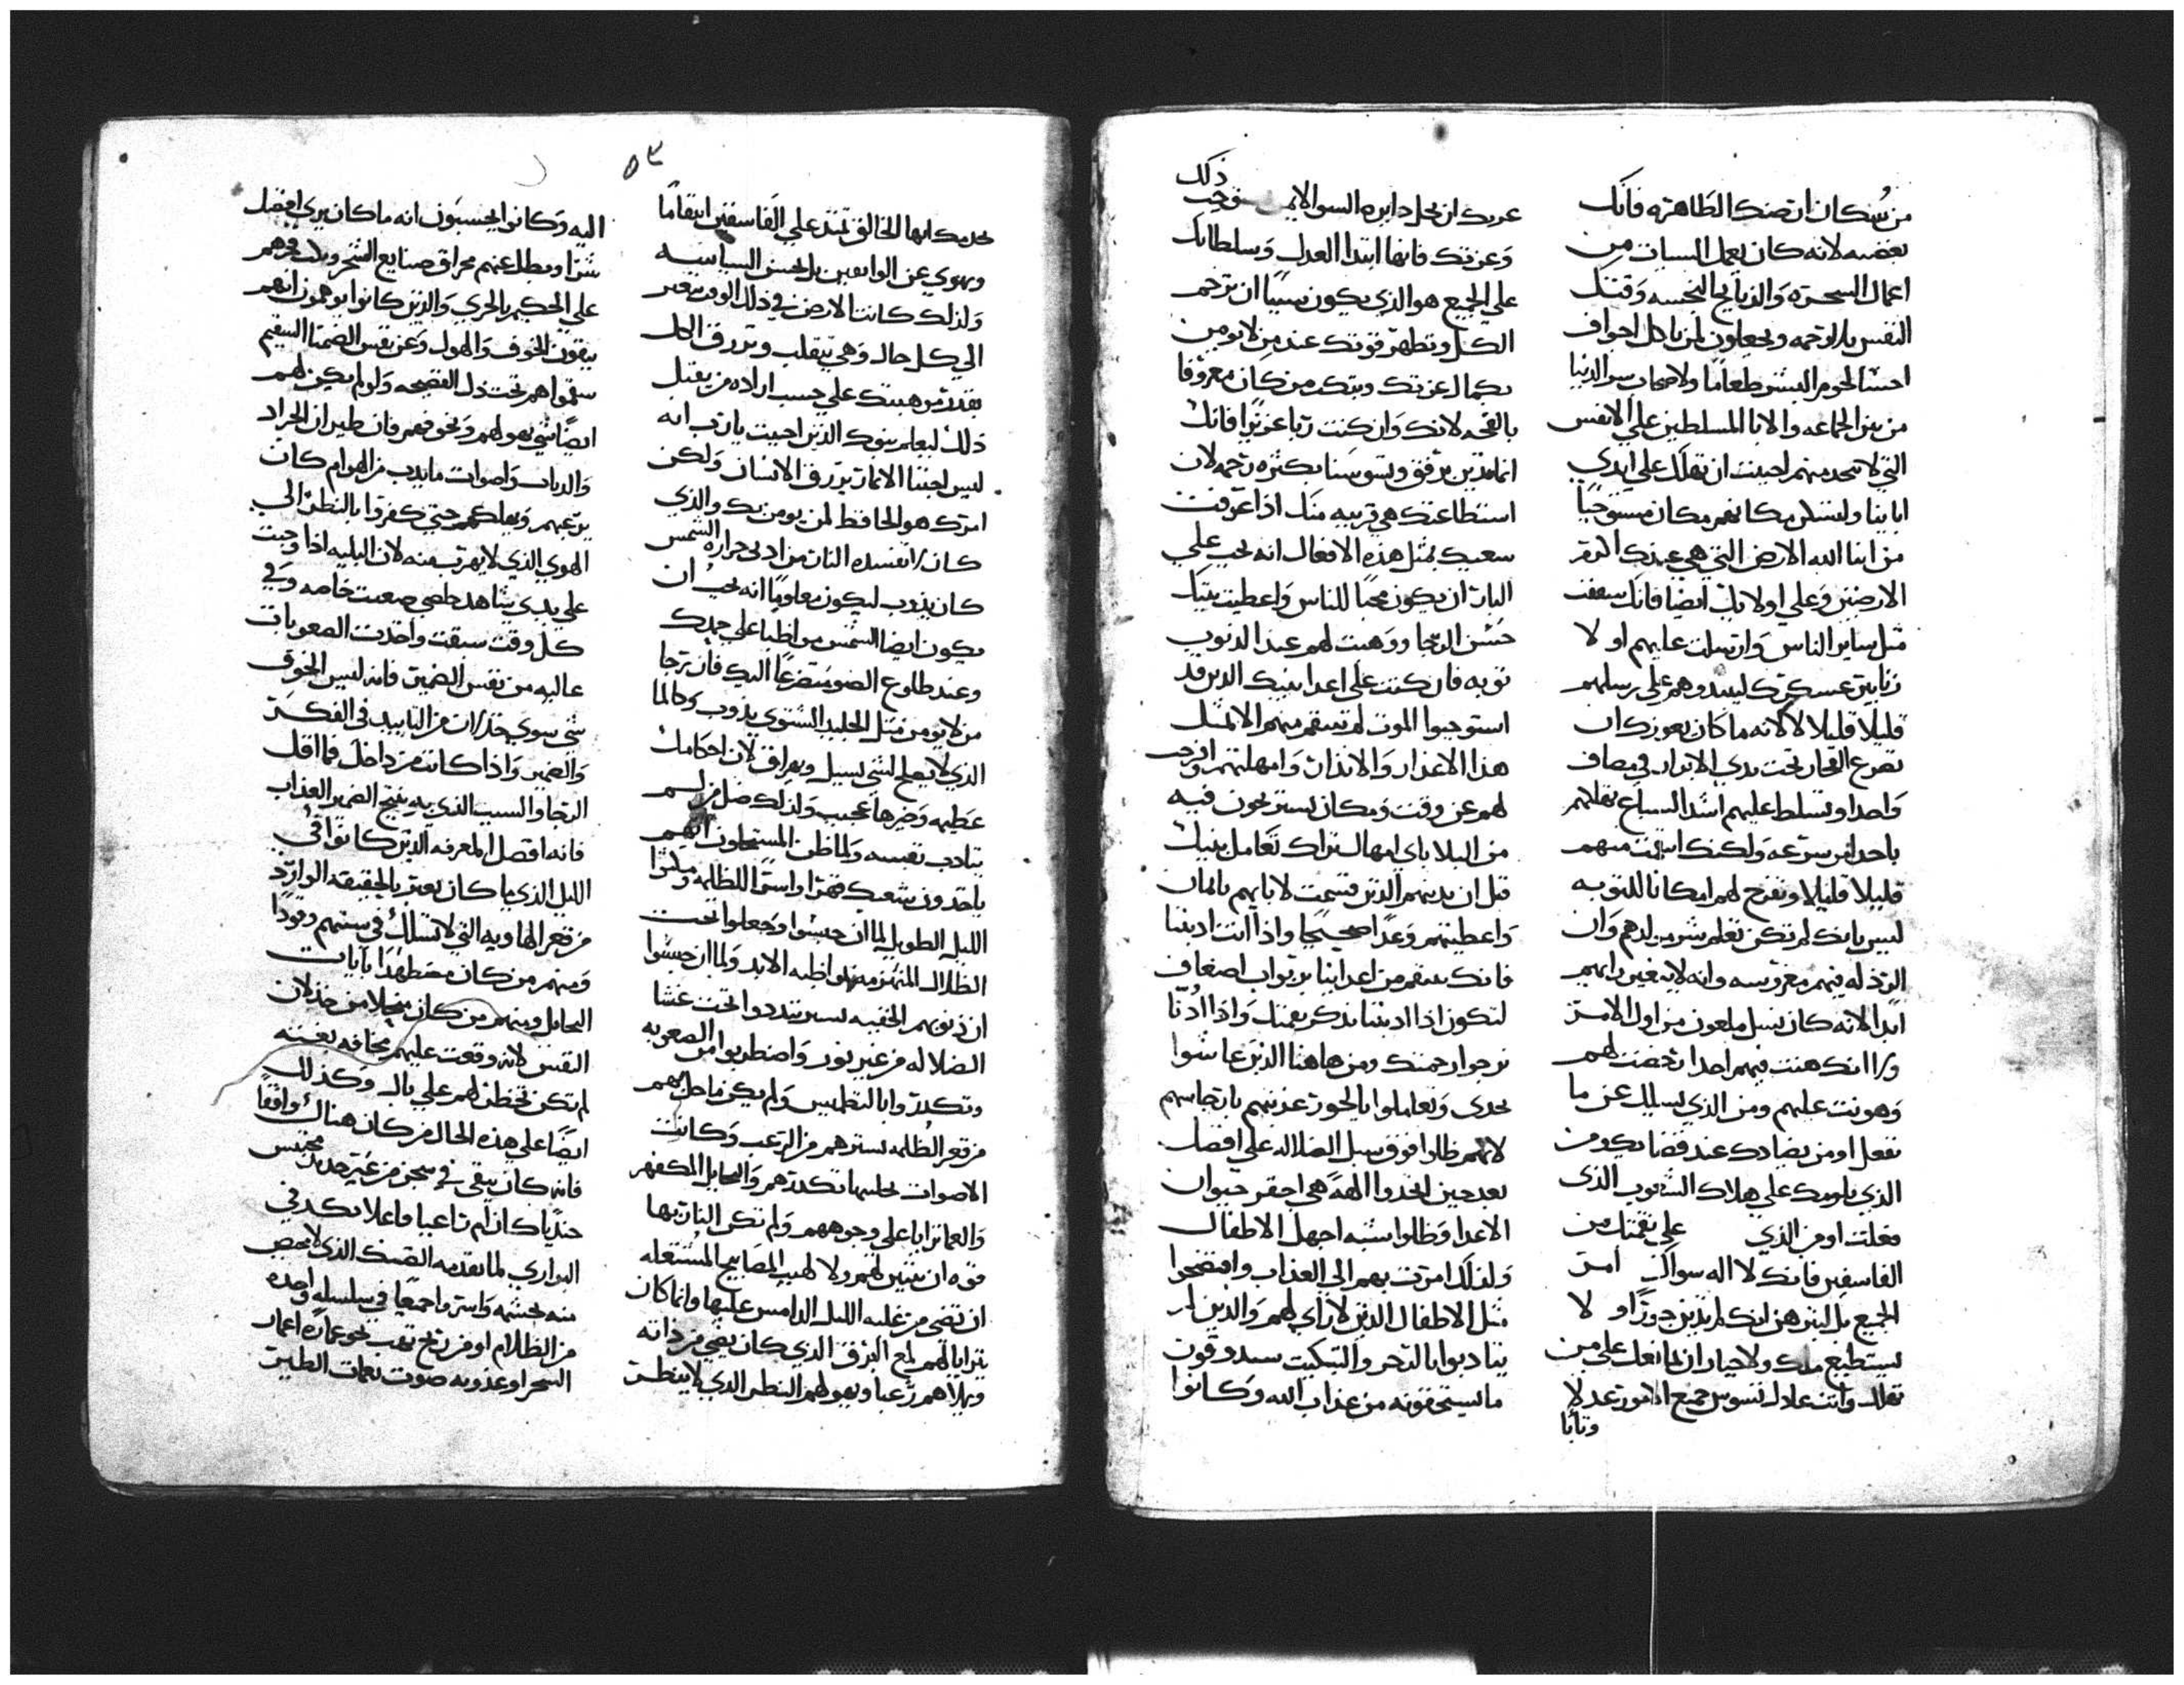 من سُكان ارضك الطاهره فانك
بغضبه لانه كان يعمل السيات من
اعمال السحره والذبايح النجسه وقتل
النفس بلا رحمه ويجعلون لمن ياكل اجواف
احشا لحوم البشر طعامًا ولاصحاب سر الدنيا
من بين الجماعه والابا المسلطين علي الانفس
التي لا تنجد منهم احببت ان تهلك علي ايدي
اباينا وليسكن مكانهم مكان مستوجبًا
من ابنا الله الارض التي هي عندك اكرم
الارضين وعلي اولايك ايضا فانك شفقت
مثل ساير الناس وارسلت عليهم اولا
زنابير عسكرك ليبيدوهم علي رسلهم
قليلا قليلا لا لانه ما كان يعوزك ان
تصرع الفجار تحت يدي الابرار في مصاف
واحد او تسلط عليهم اشد السباع تهلكهم
باحد امر بسرعه ولكنك انتقمت منهم
قليلا قليلا وتفرح لهم امكانا للتوبه
ليس بانك لم تكن تعلم بشر ميلادهم وان
الرذله فيهم مغروسه وانه لا يتغير رايهم
ابدا لانه كان نسل ملعون من اول الامر
ولا انك هبت فيهم احدا رخصت لهم
وهونت عليهم ومن الذي يسلك عن ما
تفعل او من يضادك عند قضا يكون من
الذي يلومك علي هلاك الشعوب الذي
فعلت او من الذي علي نقمتك من
الفاسقين فانك لا اله سواك امر
الجميع بل لتبرهن انك لم تدين جورًا ولا
يستطيع ملك ولا جبار ان يمانعك علي من
تهلك وانت عادل تسوس جميع الامور بعدلا
وتابا
ذلك
عزتك ان تحل دايره السوا لا من يستوجب
وعزتك فانها ابتدا العدل وسلطانك
علي الجميع هو الذي يكون سببًا ان ترحم
الكل وتظهر قوتك عند من لا يومن
بكمال عزتك وتبكت من كان معروفا
بالقحه لانك وان كنت ربا عزيزا فانك
انما تدين برفق وتسوسنا بكثره رحمه لان
استطاعتك هي قريبه منك اذا عرفت
شعبك بمثل هذه الافعال انه يجب علي
البار ان يكون محبًا للناس واعطيت بنيك
حسن الرجا ووهبت لهم عند الذنوب
توبه فان كنت علي اعدا بنيك الذين قد
استوجبوا الموت لم تنتقم منهم الا بمثل
هذا الاعذار والانذار وامهلتهم وافرجت
لهم عن وقت ومكان يستريحون فيه
من البلا باي امهال تراك تعامل بنيك
قبل ان يدينهم الذين قسمت لابايهم بايمان
واعطيتهم وعدًا صحيحًا واذا انت ادبتنا
فانك تنتقم من اعداينا بربوات اضعاف
لتكون اذا ادبتنا نذكر نعمتك واذا ادنا
نرجوا رحمتك ومن هاهنا الذين عاشوا
بحدي وتعاملوا بالجور عذبتهم بارجاسهم
لانهم ظلوا فوق سبل الضلاله علي افضل
بعد حين اتخذوا الهةً هي احقر حيوان
الاعدا وظلوا شبه اجهل الاطفال
ولذلك امرت بهم الي العذاب وافتضحوا
مثل الاطفال الذين لا راي لهم والذين لم
يتادبوا بالزجر والتبكيت سيذوقون
ما يستحقونه من عذاب الله وكانوا
٥٣
تخدمك ايها الخالق تمتد علي الفاسقين انتقامًا
ويهوي عن الواثقين بل بحسن السياسه
ولذلك كانت الارض في ذلك الوقت تتغير
الي كل حال وهي تتقلب وترزق الكل
بقدر موهبتك علي حسب اراده من يقبل
ذلك ليعلم بنوك الذين احببت يا رب انه
ليس اجناس الاثمار ترزق الانسان ولكن
امرك هو الحافظ لمن يومن بك والذي
كان لا تفسده النار من ادني حراره الشمس
كان يذوب ليكون معلومًا انه يجب ان
يكون ايضا الشمس مواظبا علي حمدك
وعند طلوع الضو متضرعًا اليك فان رجا
من لا يومن مثل الجليد الشتوي يذوب وكالما
الذي لا يصلح لشي يسيل ويهراق لان احكامك
عظيمه وخبرها عجيب ولذلك ضل من لم
يتادب نفسه ولما ظن المستحلون انهم
ياخذون شعبك قهرًا واستبد للظلمه وملتوا
الليل الطويل لما ان حبسوا وجعلوا تحت
الظلال المنهزمه مواظبه الابد ولما ان حبسوا
ان ذنوبهم الخفيه تستر تبددوا تحت غشا
الضلاله من غير نور واضطربوا من الصعوبه
وتكدروا بالتطميس ولم يكن ما حل بهم
من قعر الظلمه يسترهم من الرعب وكانت
الاصوات تحاسها تكدرهم والمحايل المكفهر
والعما ترايا علي وجوههم ولم تكن النار بها
قوه ان تنير لهم ولا لهيب المصابيح المشتعله
ان تضي من غلبه الليل الدامس عليها وانما كان
يترايا لهم لمع البرق الذي كان يضي من ذاته
ويملاهم رعبا ويهولهم النظر الذي لا ينظر
اليه وكانوا يحسبون انه ما كان يري افضل
شرًا وبطل عنهم محراق صنايع السحر وبلت فخرهم
علي الحكيم بالحري والذين كانوا يوهمون انهم
ينقون الخوف والهول وعن نفس الضمنا السقيم
سقموا هم تحت ذل الفضيحه ولو لم يكن لهم
ايضًا شي يهولهم ويخوفهم فان طيران الجراد
والدباب واصوات ما يدب من الهوام كان
يرعبهم ويهلكهم حتي كفروا بالنظر الي
الهوي الذي لا يهرب منه لان البليه اذا وجبت
علي يدي شاهد خاصي صعبت خاصه وفي
كل وقت سبقت واخذت الصعوبات
عاليه من نفس الضمير فانه ليس الخوف
شي سوي خذلان من التاييد في الفكر
والضمير واذا كانت من داخل فما اقل
الرجا والسبب الذي به ينتج الضمير العذاب
فانه افضل المعرفه الذين كانوا في
الليل الذي ما كان يعبر بالحقيقه الوارد
من قعر الهاويه التي لا تسلك في سنتهم وقودًا
ومنهم من كان مضطهدًا بايات
المحايل ومنهم من كان منحلا من خذلان
النفس لانه وقعت عليهم مخافه بغتته
لم تكن تخطر لهم علي بال وكذلك
ايضًا علي هذه الحال من كان هناك واقفًا
فانه كان يبقي في سجن من غير حديد محتبس
جنديًا كان ام راعيا وفاعلا يكد في
البراري لما تقدمه الضنك الذي لا يحيص
منه بحسمه واستروا جميعًا في سلسله واحده
من الظلام او من ريح تهب نحو عماره اعمار
السحر او عذوبه صوت نغمات الطير